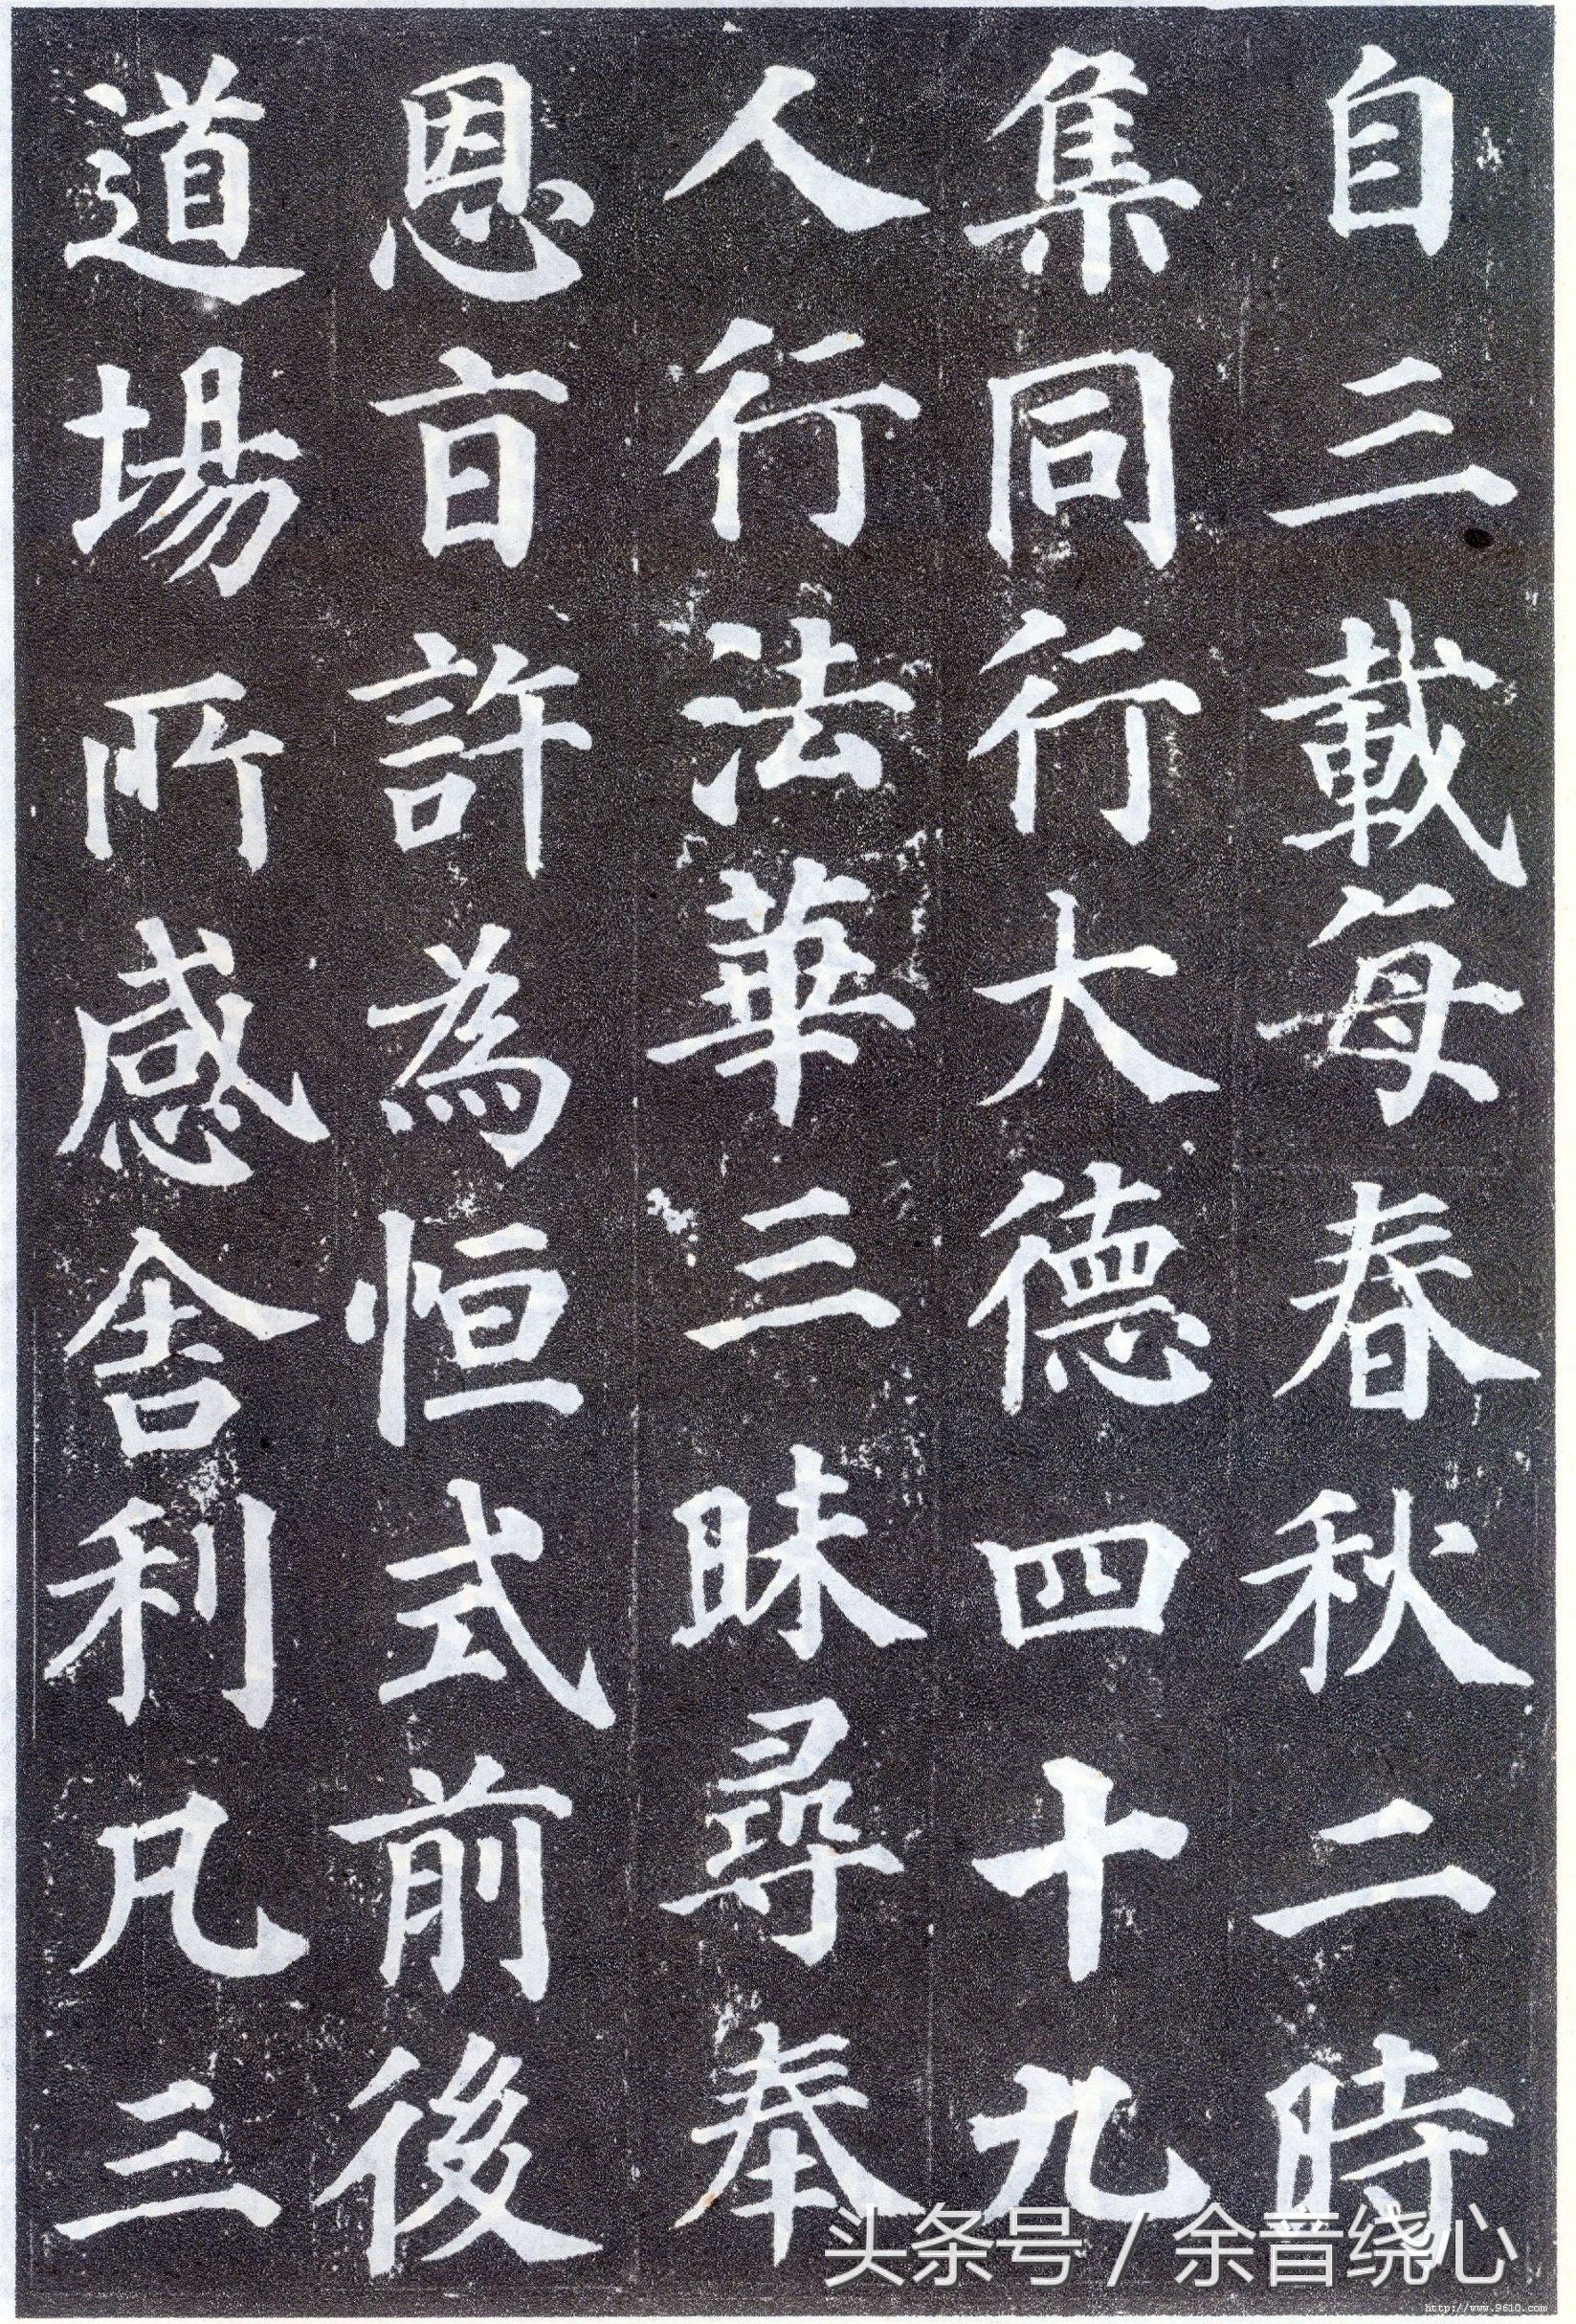 自三載每春秋二時
集同行大德四十九
人行法華三昧尋奉
恩旨許為恒式前後
道場所感舍利凡三
头条号 / 余音绕心
http://www.9610.com